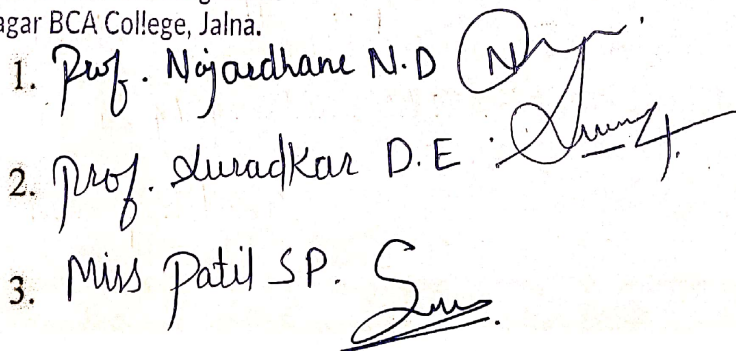 agar BCA College, Jalna.
1. Prof. Najardhane N.D
2. Prof. Suradkar D.E.
3. Miss Patil S P.